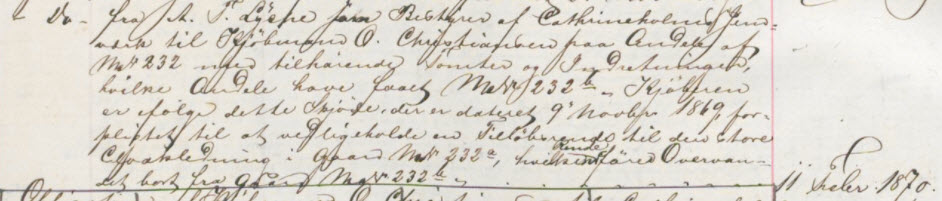 Do - fra A. T. Lysne som Bestyrer af Cathrineholms Jern-
værk til Kjöbmand O. Christiansen paa Andele af
M.Nr 232 med tilhörende Tomter og Indretninger,
hvilke Andele have faaet M.Nr 232b. Kjöberen
er ifölge dette Skjöde, der er dateret 9 Novbr 1869, for-
pligtet til at vedligeholde en Tillöbsrende til den store
Cloakledning i Gaard M.Nr 232a, hvilken Rende förer Overvan-
det bort fra Gaard M.Nr 232b. 11 Febr 1870.
O. til